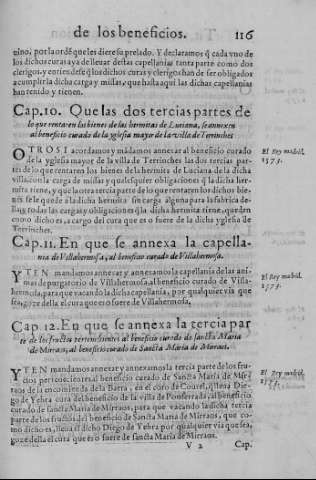 de los beneficios. 116
zino, por la ordē que les diere su prelado. Y declaramos q̄ cada vno de
los dichos curas aya de lleuar destas capellanias tanta parte como dos
clerigos, y entiendese q̄ los dichos curas y clerigos han de ser obligados
a cumplir la dicha carga de missas, que hasta aqui las dichas capellanias
han tenido y tienen.
Cap. 10. Que las dos tercias partes de
lo que rentaren los bienes de las hermitas de Luciana, se annexen
al beneficio curado de la yglesia mayor de la villa de Terrinches
OTROSI acordamos y mādamos annexar al beneficio curado
de la yglesia mayor de la villa de Terrinches las dos tercias par-
tes de lo que rentaren los bienes de la hermita de Luciana de la dicha
villa, con la carga de missas y qualesquier obligaciones q̄ la dicha her-
mita tiene, y que la otra tercia parte de lo que rentaren los dichos bie-
nes se le quede à la dicha hermita sin carga alguna para la fabrica de-
lla, y todas las cargas y obligaciones q̄ la dicha hermita tiene, quedē
como dicho es, a cargo del cura que es o fuere de la dicha yglesia de
Terrinches.
El Rey madrid.
1573.
Cap. 11. En que se annexa la capella-
nia de Villahermosa, al beneficio curado de Villahermosa.
YTEN mandamos annexar y annexamos la capellania de las ani-
mas de purgatorio de Villahermosa al beneficio curado de Villa-
hermosa, para que vacando la dicha capellania, por qualquier via que
sea, goze della el cura que es o fuere de Villahermosa.
El Rey madrid.
1573.
Cap. 12. En que se annexa la tercia par
te de los fructos pertenecientes al beneficio curado de sancta Maria
de Mirraos, al beneficio curado de Sancta Maria de Mirraos.
YTEN mandamos annexar y annexamos la tercia parte de los fru-
ctos pertenecientes al beneficio curado de Sancta Maria de Mir-
raos de la encomienda de la Barra, en el coto de Couuel, q̄ lleua Die-
go de Yebra cura del beneficio de la villa de Ponferrada, al beneficio
curado de Sancta Maria de Mirraos, para que vacando la dicha tercia
parte de los fructos del beneficio de Sancta Maria de Mirraos, que co-
mo dicho es, lleua el dicho Diego de Yebra por qualquier via que sea,
goze della el cura que es o fuere de Sancta Maria de Mirraos.
El Rey madrid,
1573.
V 2 Cap.